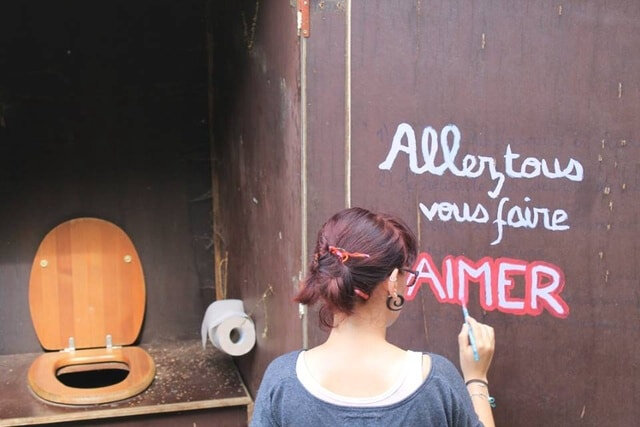 Allez tous
vous faire
AIMER